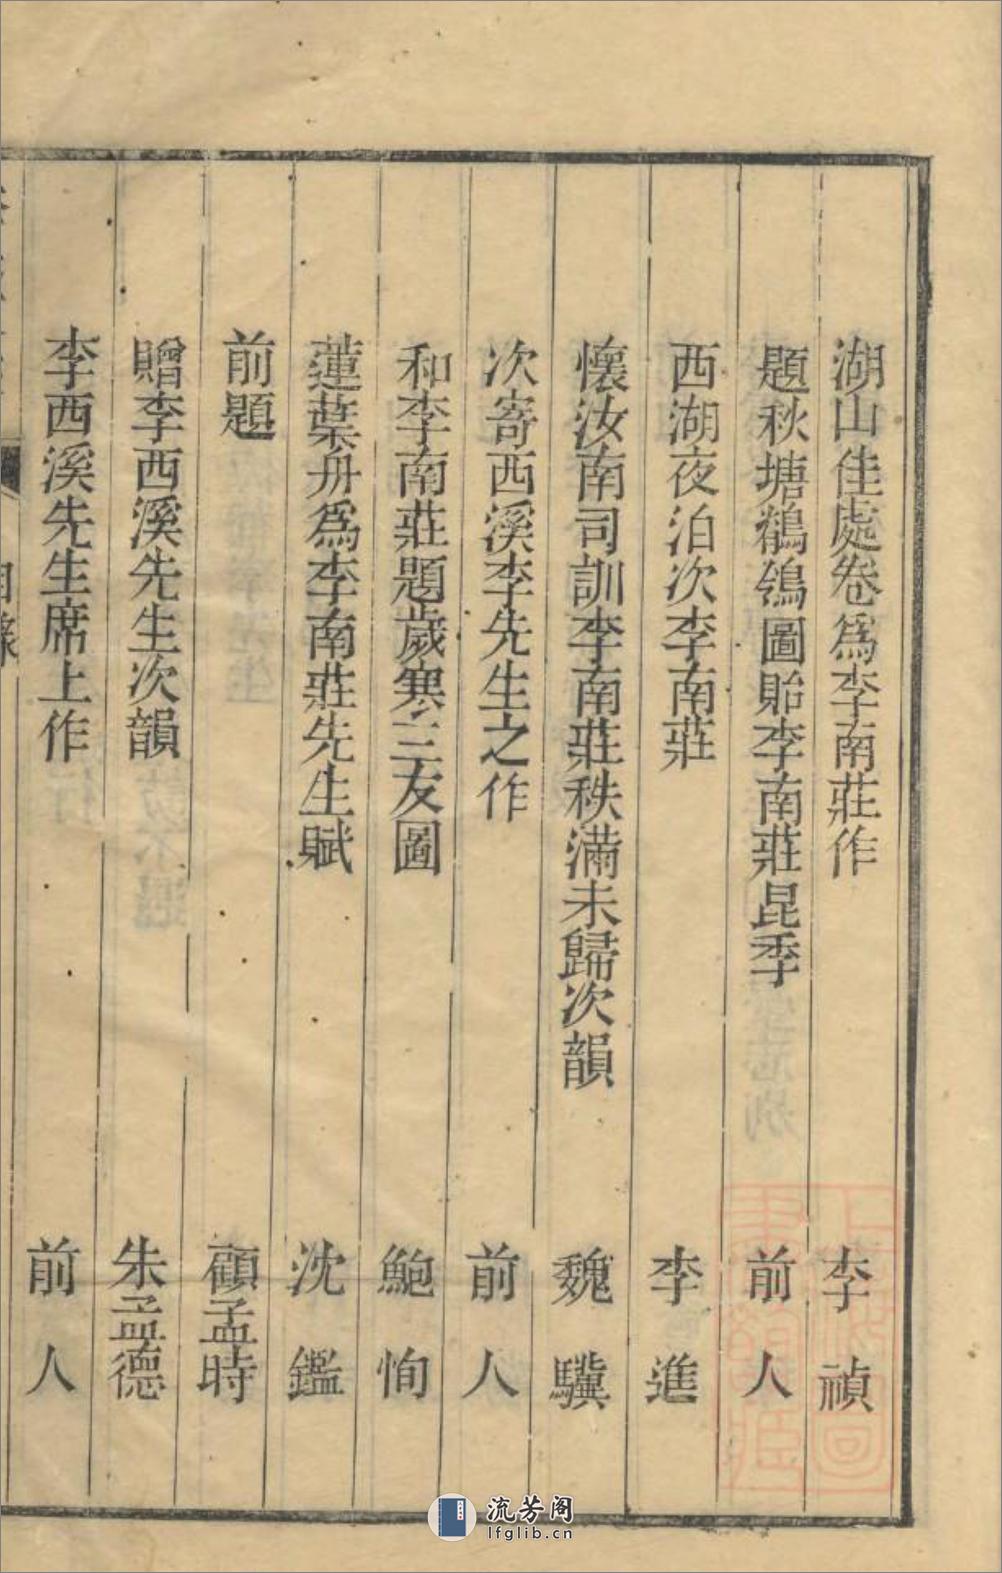 湖山佳處卷爲李南莊作 李禎
題秋塘鶺鴒圖貽李南莊昆季 前人
西湖夜泊次李南莊 李進
懷汝南司訓李南莊秩滿未歸次韻 魏驥
次寄西溪李先生之作 前人
和李南莊題歲寒三友圖 鮑恂
蓮葉舟爲李南莊先生賦 沈鑑
前題 顧孟時
贈李西溪先生次韻 朱孟德
李西溪先生席上作 前人
目錄
流芳阁
lfglib.cn